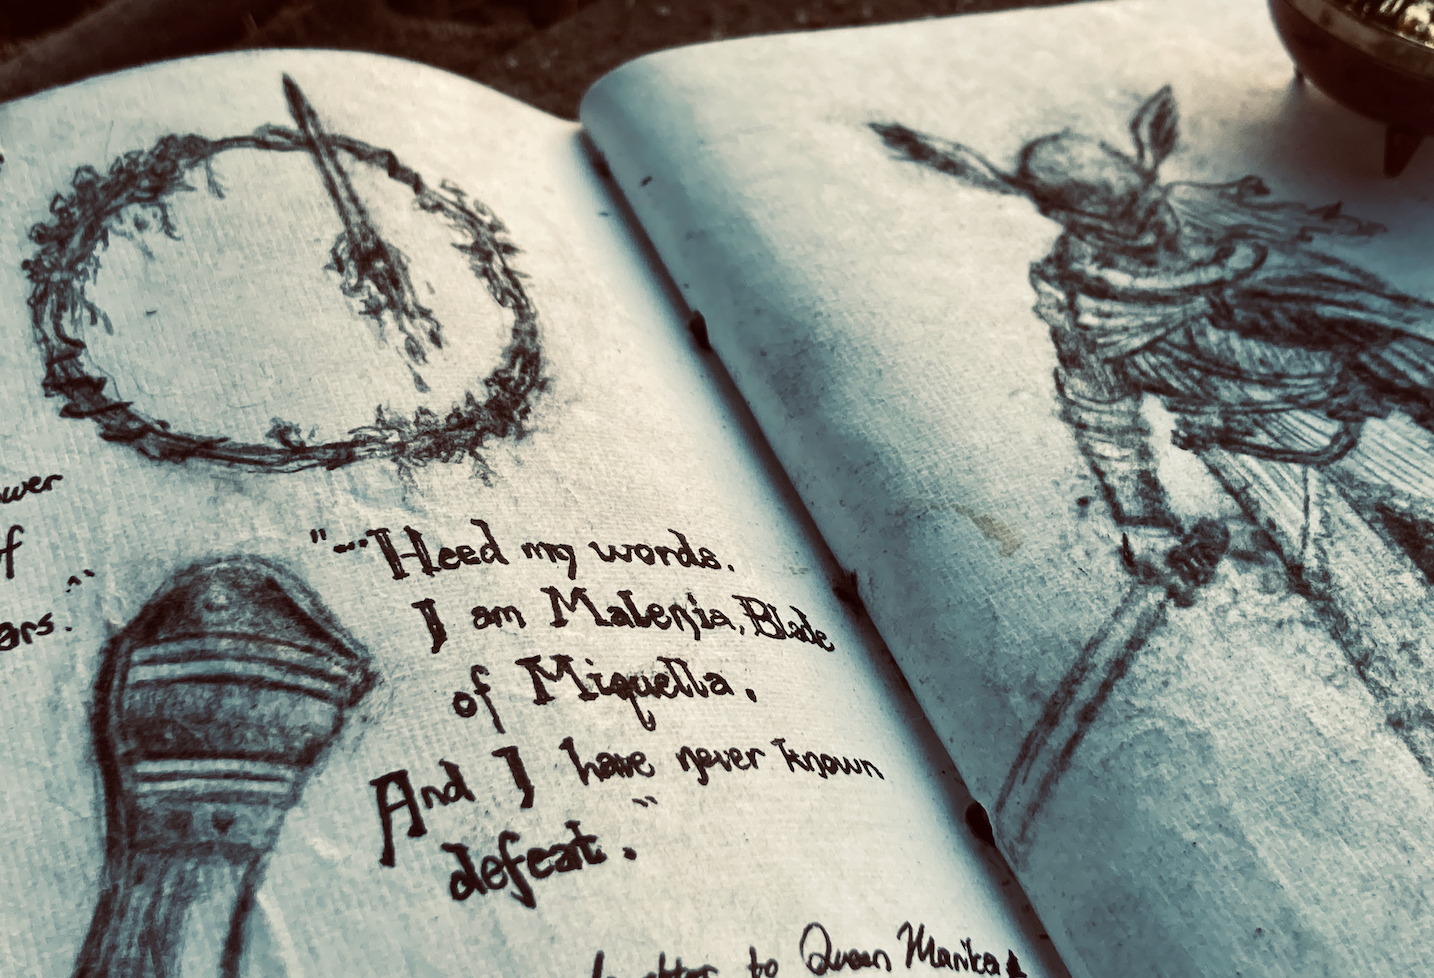 "...Heed my words.
I am Malenia, Blade
of Miquella.
And I have never known
defeat."
to Queen Marika